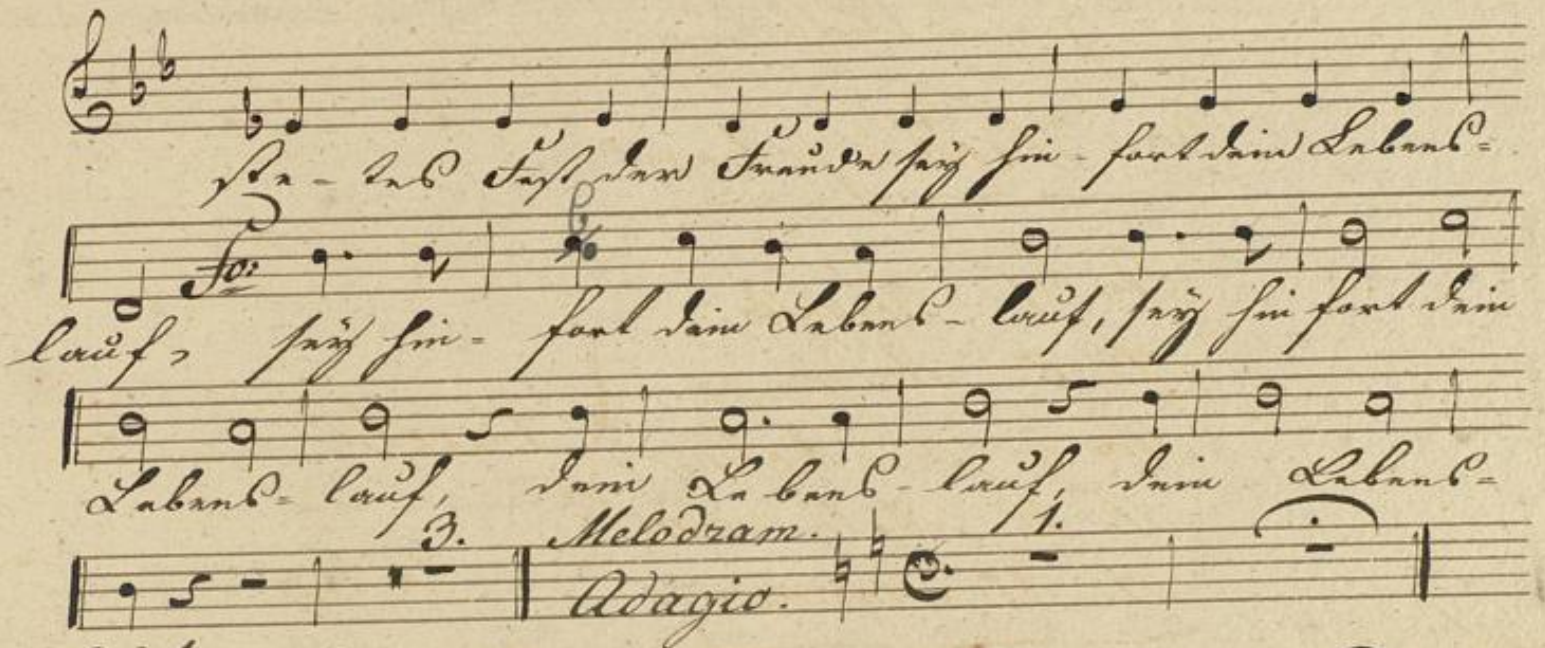 ste- tes Fest der Freude sey hin- fort dein Lebens-
fo:
lauf, sey hin- fort dein Lebens- lauf, sey hin fort dein
Lebens- lauf, dein Le bens- lauf, dein Lebens-
3. Melodram. 1.
Adagio.